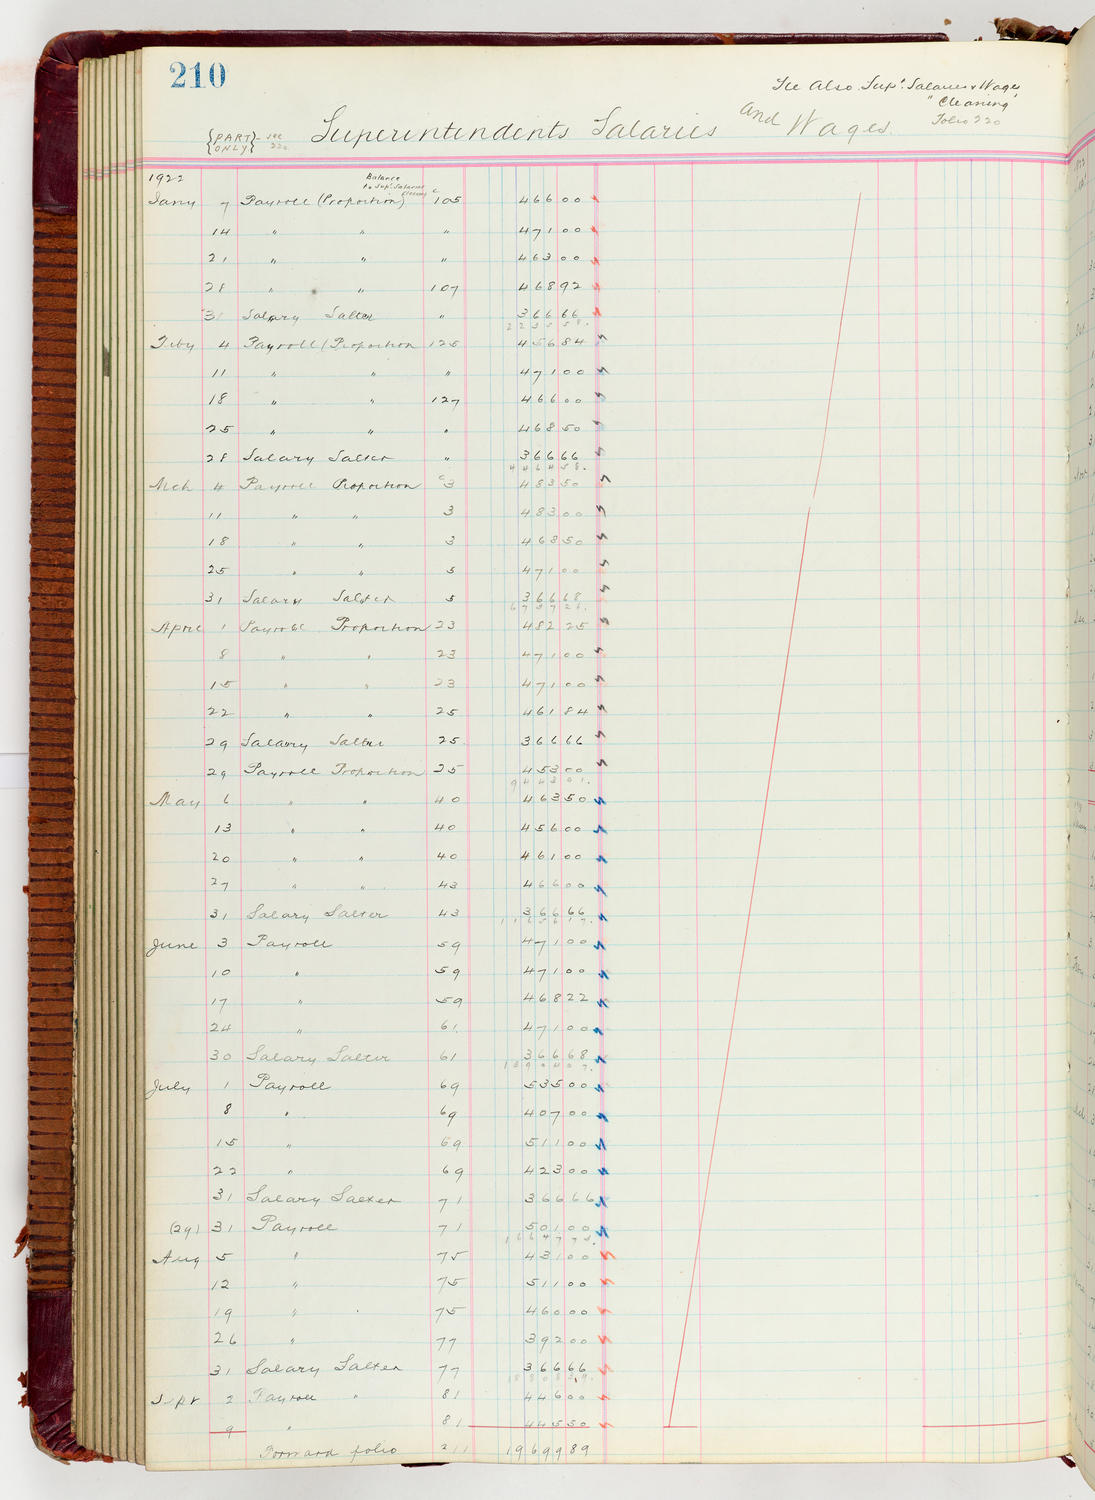 210
See Also Supt. Salaries & Wages
" Cleaning
Folio 220
{PART ONLY} see 220 Superintendents Salaries and Wages.
1922 Balance
to Supt. Salaries Cleaning
Jany 7 Payroll (Proportion) C 105 466 00
14 " " " 471 00
21 " " " 463 00
28 " " 107 468 92
31 Salary Salter " 366 66
2235 58.
Feby 4 Payroll (Proportion 125 456 84
11 " " " 471 00
18 " " 127 466 00
25 " " " 468 50
28 Salary Salter " 366 66
4464 58.
Mch 4 Payroll Proportion C 3 483 50
11 " " 3 483 00
18 " " 3 468 50
25 " " 5 471 00
31 Salary Salter 5 366 68
6737 26.
April 1 Payroll Proportion 23 482 25
8 " " 23 471 00
15 " " 23 471 00
22 " " 25 461 84
29 Salary Salter 25. 366 66
29 Payroll Proportion 25 453 00
9443 01.
May 6 " " 40 463 50
13 " " 40 456 00
20 " " 40 461 00
27 " " 43 466 00
31 Salary Salter 43 366 66
11656 17.
June 3 Payroll 59 471 00
10 " 59 471 00
17 " 59 468 22
24 " 61. 471 00
30 Salary Salter 61 366 68
13904 07.
July 1 Payroll 69 535 00
8 " 69 407 00
15 " 69 511 00
22 " 69 423 00
31 Salary Salter 71 366 66
(29) 31 Payroll 71 501 00
16647 73.
Aug 5 " 75 431 00
12 " 75 511 00
19 " 75 460 00
26 " 77 392 00
31 Salary Salter 77 366 66
18808 39.
Sept 2 Payroll " 81 446 00
9 " 81 445 50
Forward folio 211 19699 89